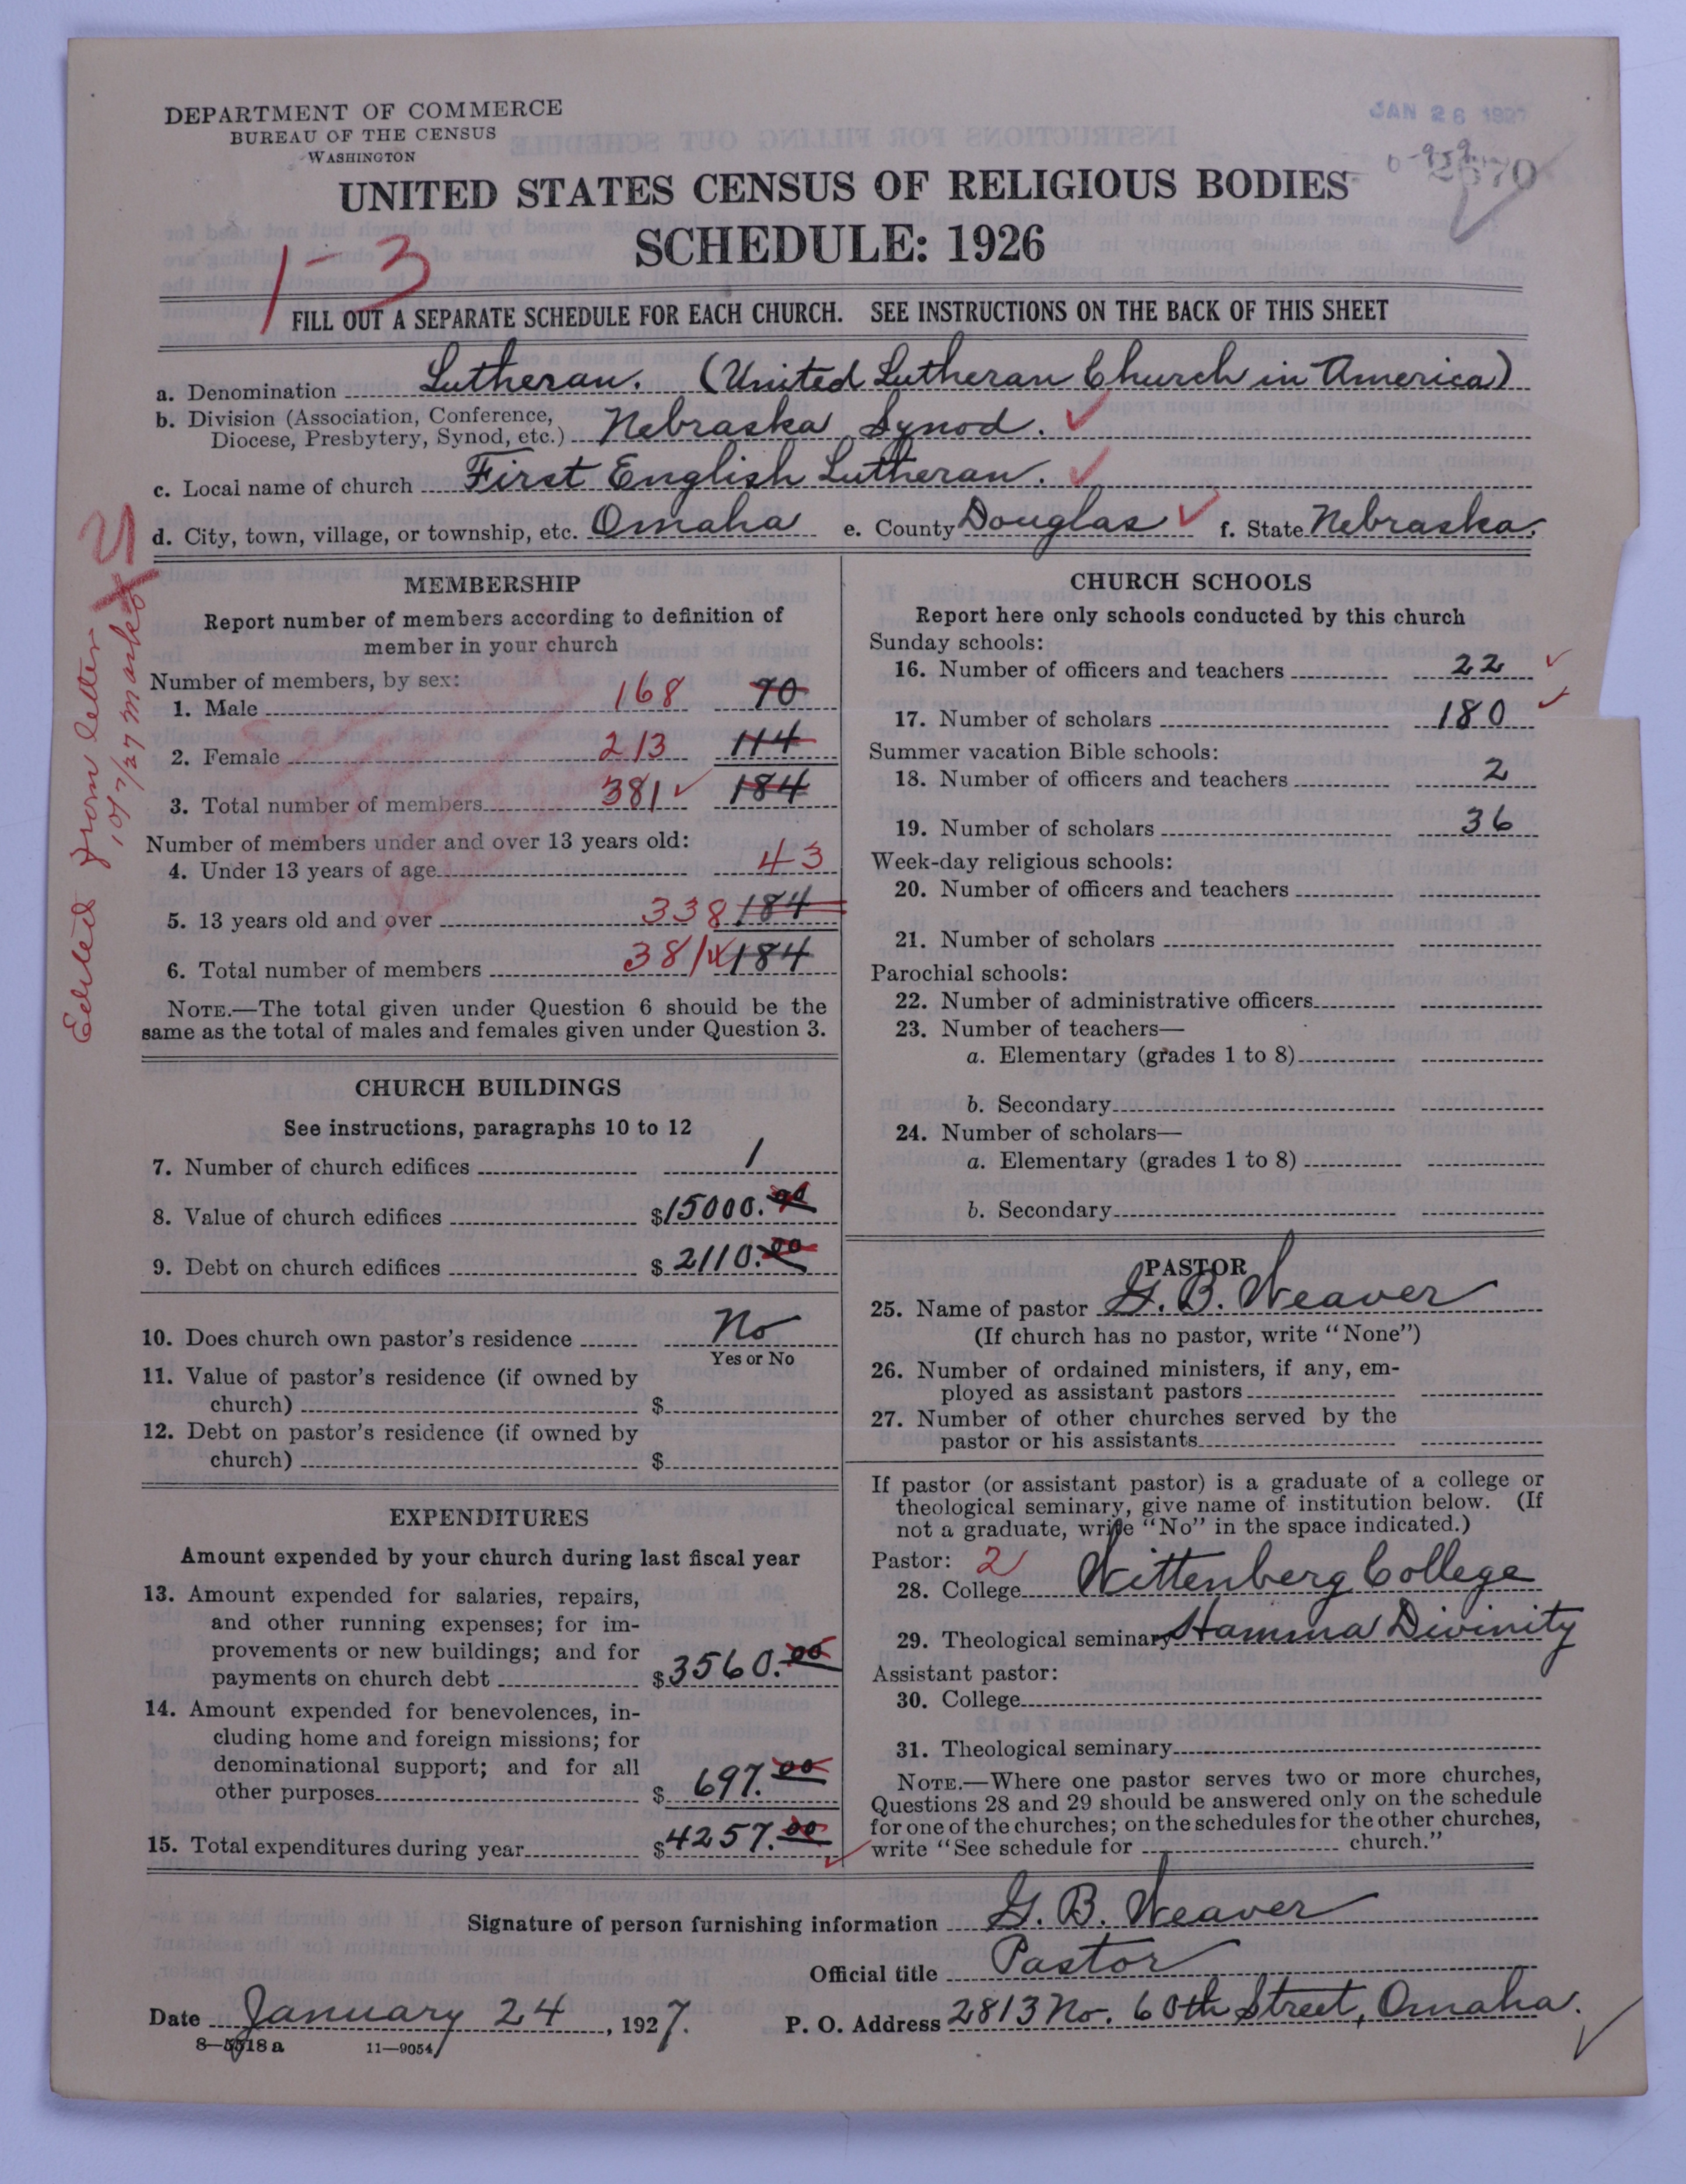 DEPARTMENT OF COMMERCE
BUREAU OF THE CENSUS
WASHINGTON
JAN 26 1927
UNITED STATES CENSUS OF RELIGIOUS BODIES
SCHEDULE: 1926
1-3
FILL OUT A SEPARATE SCHEDULE FOR EACH CHURCH. SEE INSTRUCTIONS ON THE BACK OF THIS SHEET
a. Denomination Lutheran. (United Lutheran Church in America)
b. Division (Association, Conference,
Diocese, Presbytery, Synod, etc.) Nebraska Synod. ✓
c. Local name of church First English Lutheran. ✓
d. City, town, village, or township, etc. Omaha e. County Douglas ✓ f. State Nebraska.
MEMBERSHIP
Report number of members according to definition of
member in your church
Number of members, by sex:
1. Male 168 70
2. Female 213 114
3. Total number of members 381 ✓ 184
Number of members under and over 13 years old:
4. Under 13 years of age 43
5. 13 years old and over 338 184
6. Total number of members 381 184
NOTE.—The total given under Question 6 should be the
same as the total of males and females given under Question 3.
CHURCH BUILDINGS
See instructions, paragraphs 10 to 12
7. Number of church edifices 1
8. Value of church edifices $15000.00
9. Debt on church edifices $2110.00
10. Does church own pastor's residence No
Yes or No
11. Value of pastor's residence (if owned by
church) $
12. Debt on pastor's residence (if owned by
church) $
EXPENDITURES
Amount expended by your church during last fiscal year
13. Amount expended for salaries, repairs,
and other running expenses; for im-
provements or new buildings; and for
payments on church debt $3560.00
14. Amount expended for benevolences, in-
cluding home and foreign missions; for
denominational support; and for all
other purposes $ 697.00
15. Total expenditures during year $4257.00
CHURCH SCHOOLS
Report here only schools conducted by this church
Sunday schools:
16. Number of officers and teachers 22 ✓
17. Number of scholars 180 ✓
Summer vacation Bible schools:
18. Number of officers and teachers 2
19. Number of scholars 36
Week-day religious schools:
20. Number of officers and teachers
21. Number of scholars
Parochial schools:
22. Number of administrative officers
23. Number of teachers—
a. Elementary (grades 1 to 8)
b. Secondary
24. Number of scholars—
a. Elementary (grades 1 to 8)
b. Secondary
PASTOR
25. Name of pastor G. B. Weaver
(If church has no pastor, write "None")
26. Number of ordained ministers, if any, em-
ployed as assistant pastors
27. Number of other churches served by the
pastor or his assistants
If pastor (or assistant pastor) is a graduate of a college or
theological seminary, give name of institution below. (If
not a graduate, write "No" in the space indicated.)
Pastor: 2
28. College Wittenberg College
29. Theological seminary Hamma Divinity
Assistant pastor:
30. College
31. Theological seminary
NOTE.—Where one pastor serves two or more churches,
Questions 28 and 29 should be answered only on the schedule
for one of the churches; on the schedules for the other churches,
write "See schedule for church."
Signature of person furnishing information G. B. Weaver
Official title Pastor
Date January 24, 1927.
P. O. Address 2813 No. 60th Street, Omaha.
8—5518 a 11—9054
Edited from letter